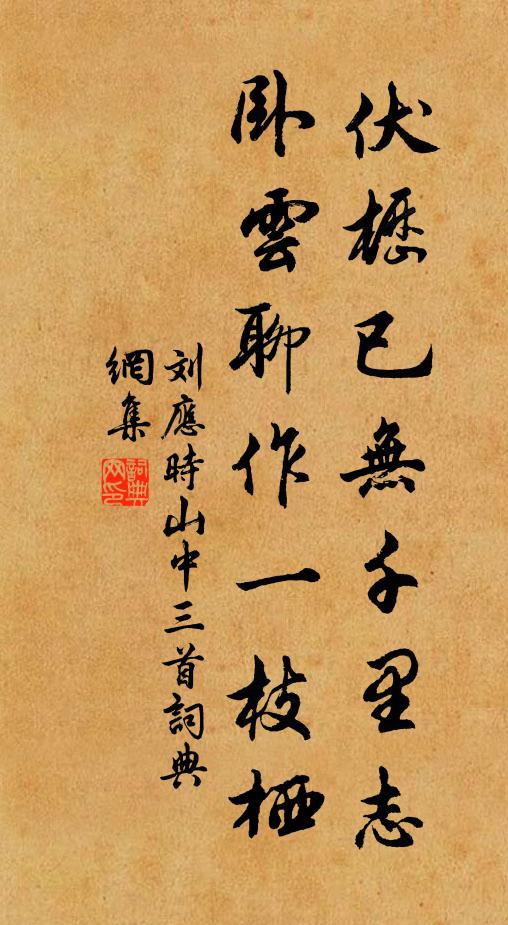 伏櫪已無千里志
卧雲聊作一枝栖
刘應時山中三首詞典
網集
詞典網印